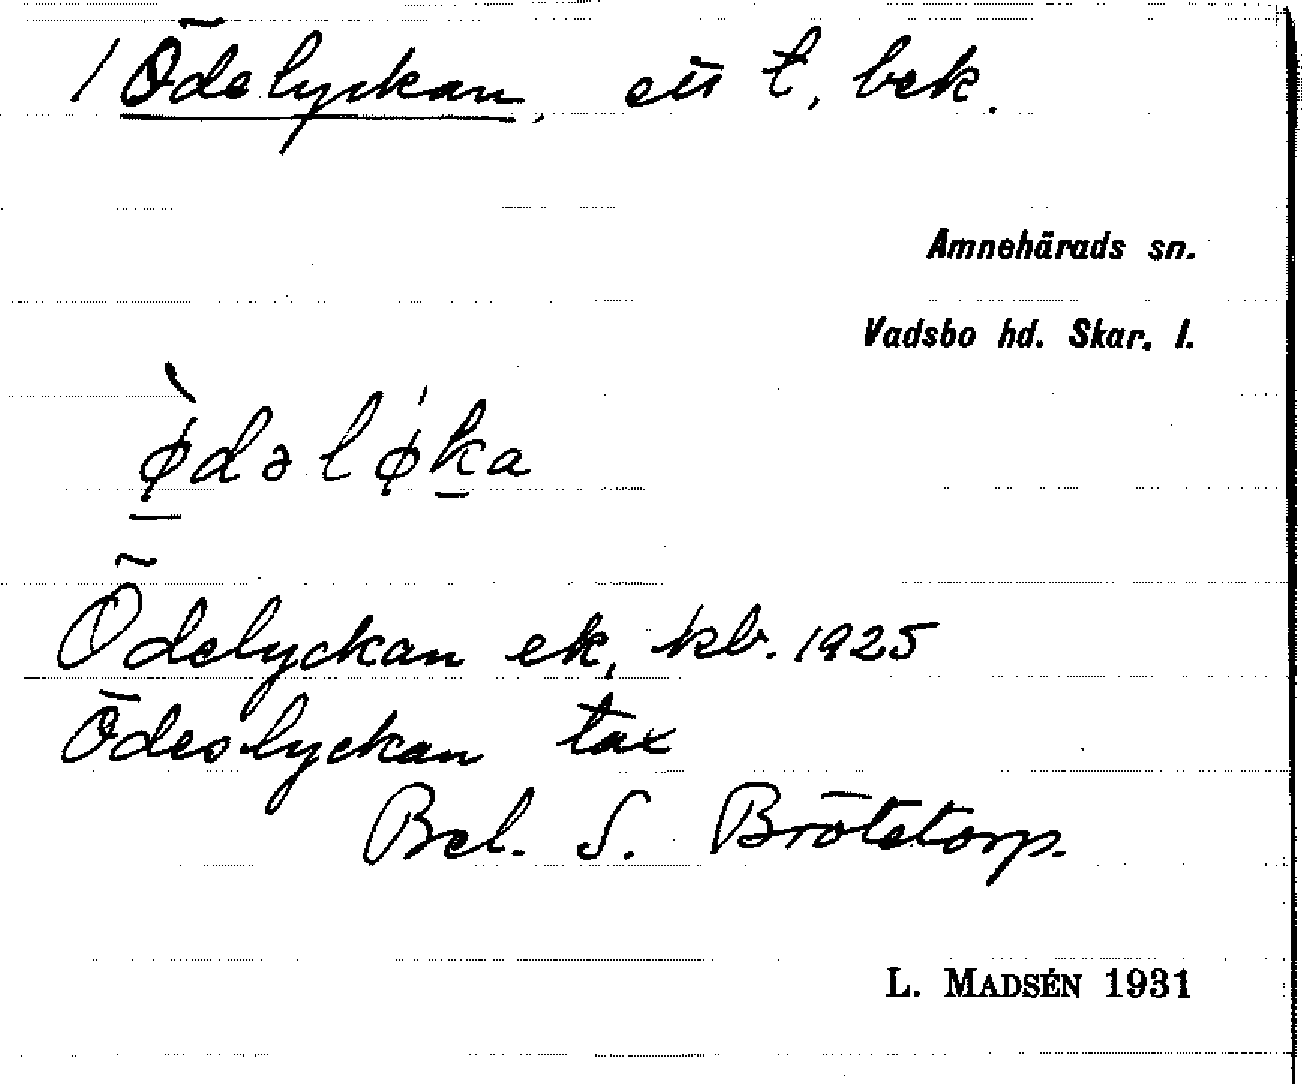 / Ödelyckan, ett t, bek.
Amnehärads sn.
Vadsbo hd. Skar. l.
ø̀dəlǿka
Ödelyckan ek, kb. 1925
Ödeslyckan tax
Bel. S. Brötetorp.
L. MADSÉN 1931